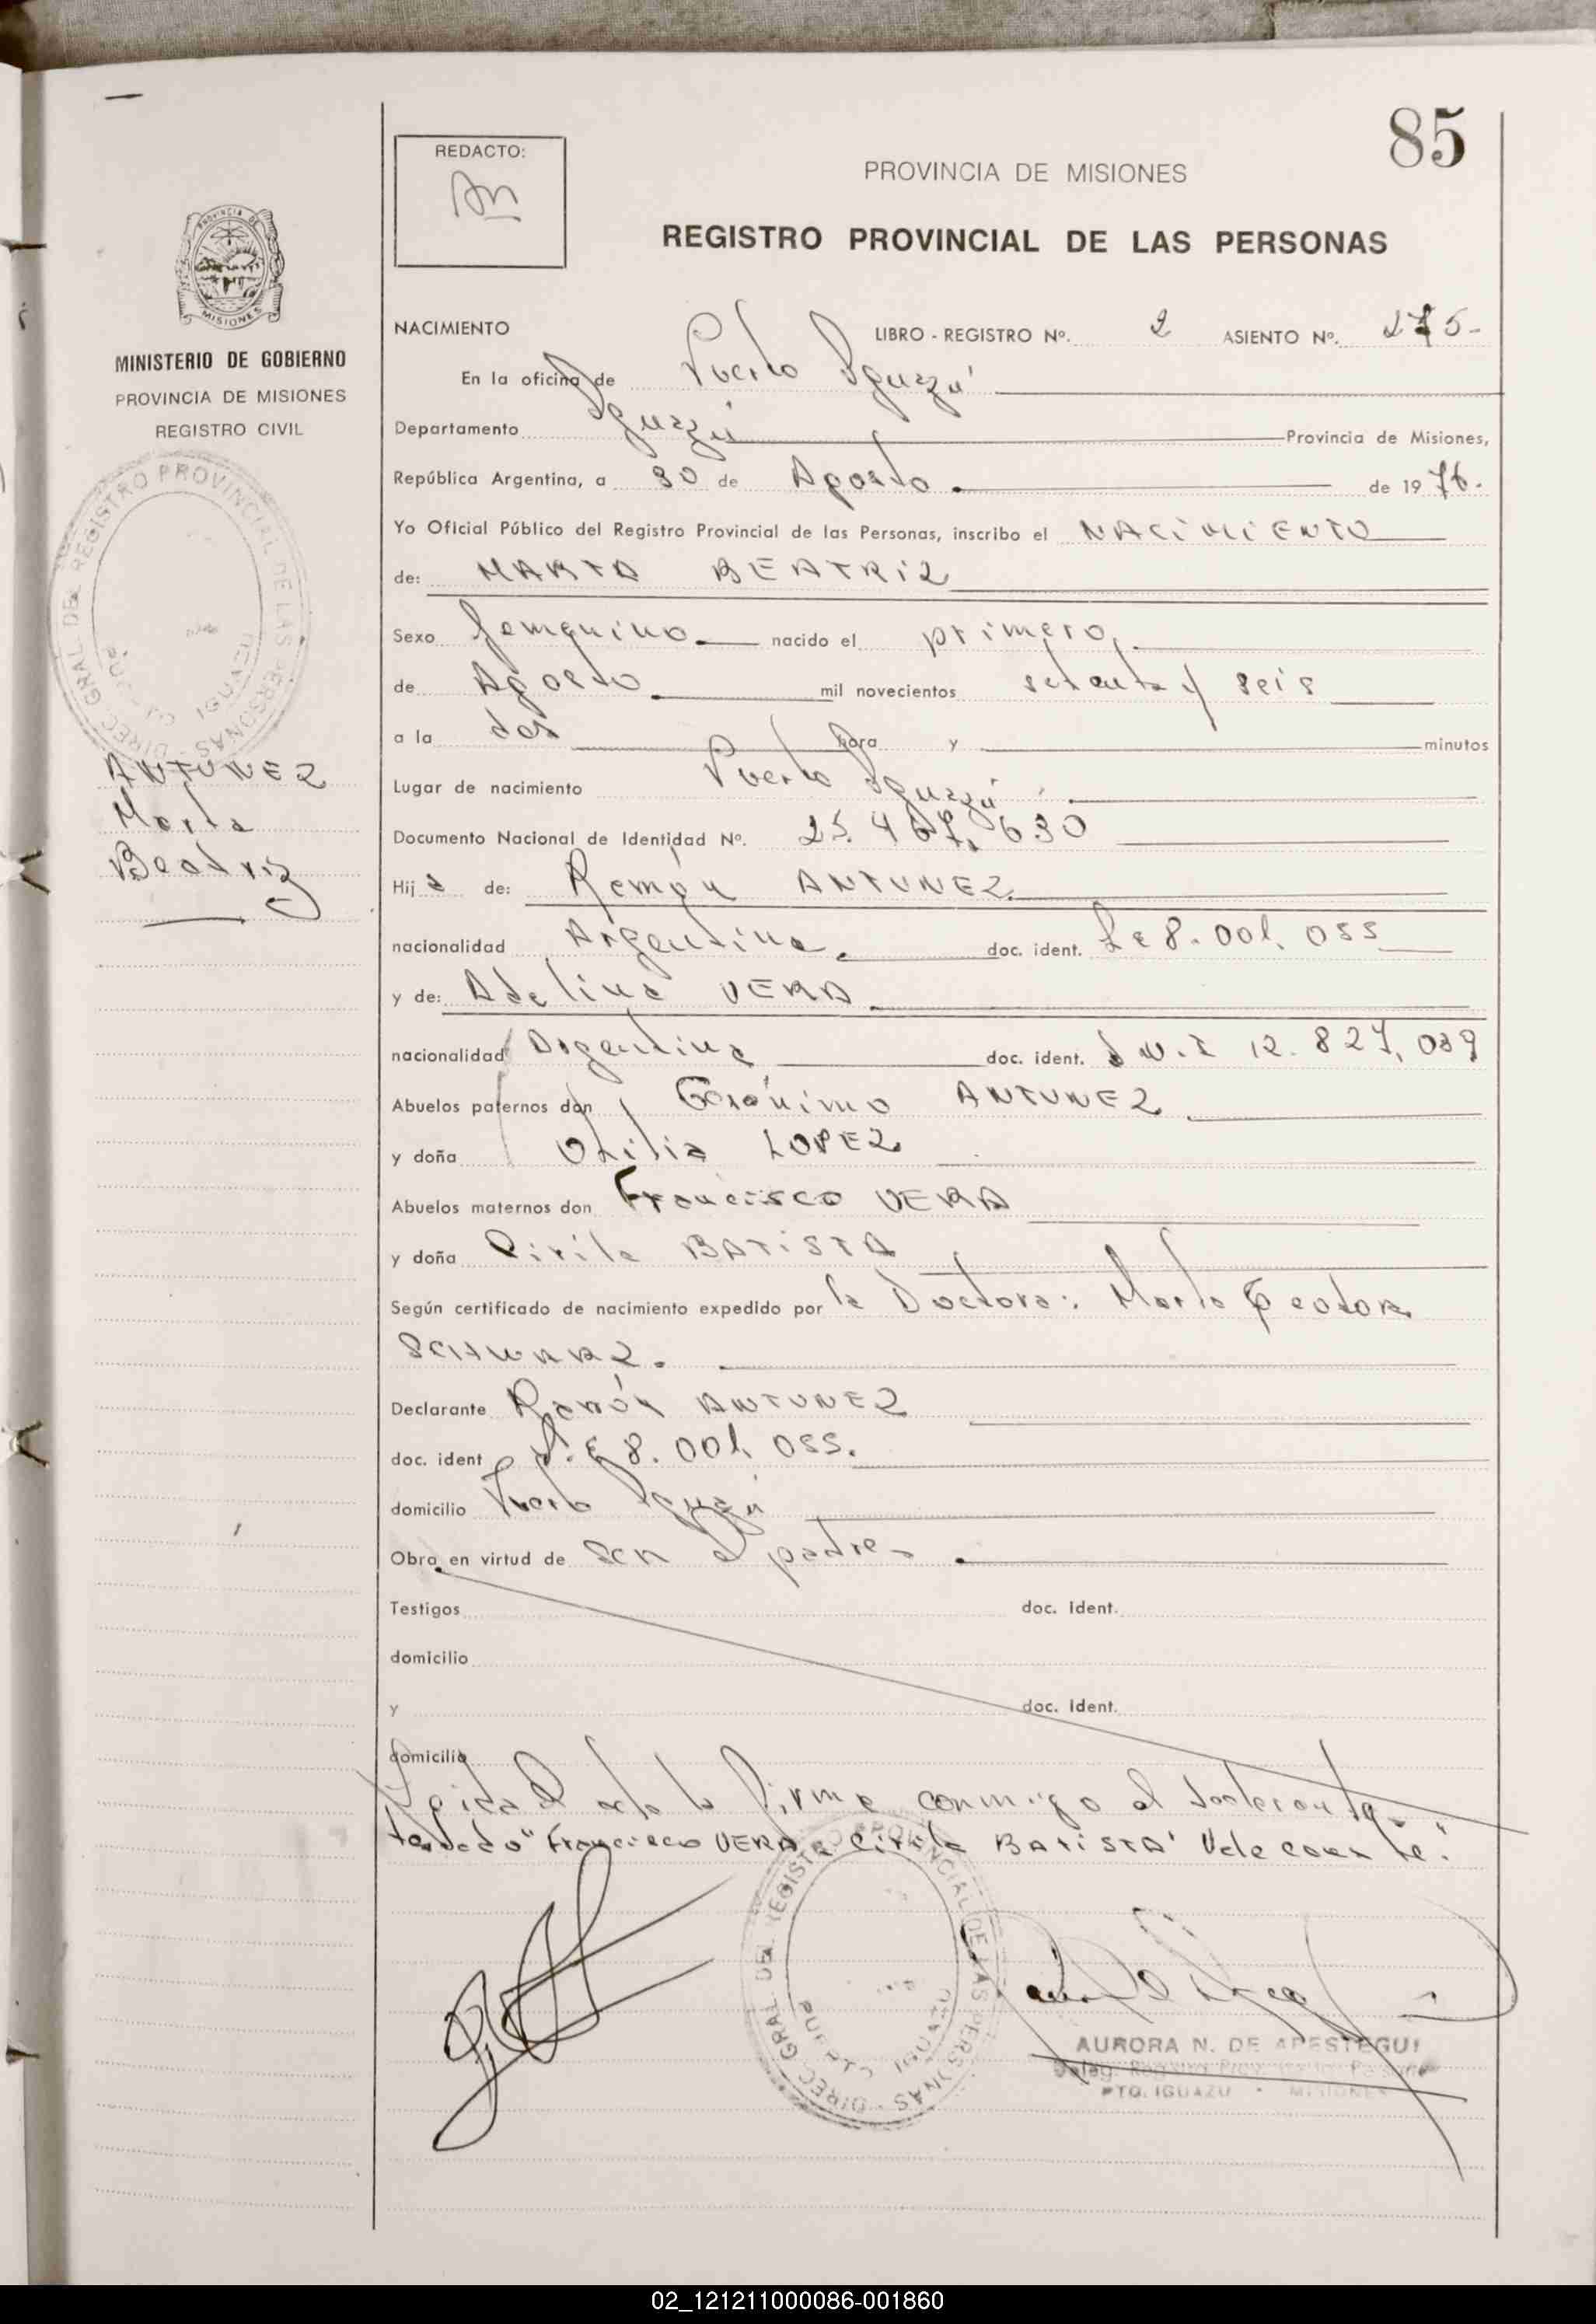 85
REDACTO:
PROVINCIA DE MISIONES
REGISTRO PROVINCIAL DE LAS PERSONAS
PROVINCIA DE MISIONES
MINISTERIO DE GOBIERNO
PROVINCIA DE MISIONES
REGISTRO CIVIL
DIREC GRAL DEL REGISTRO PROVINCIAL DE LAS PERSONAS
ANTUNEZ
Marta
Beatriz
NACIMIENTO LIBRO - REGISTRO Nº. 2 ASIENTO Nº. 275-
En la oficina de Puerto Iguazú
Departamento Iguazú Provincia de Misiones,
República Argentina, a 30 de Agosto de 1976.
Yo Oficial Público del Registro Provincial de las Personas, inscribo el NACIMIENTO
de: MARTA BEATRIZ
Sexo femenino nacido el primero
de Agosto mil novecientos setenta y seis
a la dos hora y minutos
Lugar de nacimiento Puerto Iguazú
Documento Nacional de Identidad Nº. 25.467.630
Hija de: Ramón ANTUNEZ
nacionalidad Argentina doc. ident. L.E 8.001.055
y de: Adelina VERA
nacionalidad Argentina doc. ident. D.N.I 12.827.039
Abuelos paternos don Gerónimo ANTUNEZ
y doña Otilia LOPEZ
Abuelos maternos don Francisco VERA
y doña Cirila BATISTA
Según certificado de nacimiento expedido por la Doctora: María Teodora
SCHWARZ.
Declarante Ramón ANTUNEZ
doc. ident L.E 8.001.055.
domicilio Puerto Iguazú
Obra en virtud de ser el padre
Testigos doc. ident.
domicilio
y doc. ident.
domicilio
Leida el acta la firma conmigo el declarante
"Francisco VERA e Cirila BATISTA" Vale
DIREC GRAL DEL REGISTRO PROVINCIAL DE LAS PERSONAS
AURORA N. DE APESTEGUI
PTO. IGUAZU - MISIONES
02_121211000086-001860